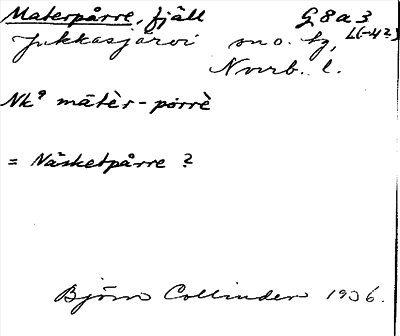 Materpårre, fjäll G 8 a 3
Jukkasjärvi sn o. tg,
Norrb. l.
Nk⁹ mātèr-porrè
= Näsketpårre ?
Björn Collinder 1936.